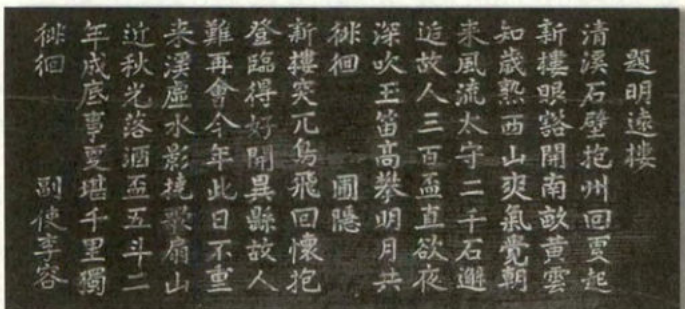 題明遠樓
清溪石壁抱州回更起
新樓眼豁開南畝黄雲
知歲熟西山爽氣覺朝
来風流太守二千石邂
逅故人三百盃直欲夜
深吹玉笛高攀明月共
徘徊 圃隱
新樓突兀鳥飛回懷抱
登臨得好開異縣故人
難再會今年此日不重
来溪虛水影搖歌扇山
近秋光落酒盃五斗二
年成底事更堪千里獨
徘徊 副使李容